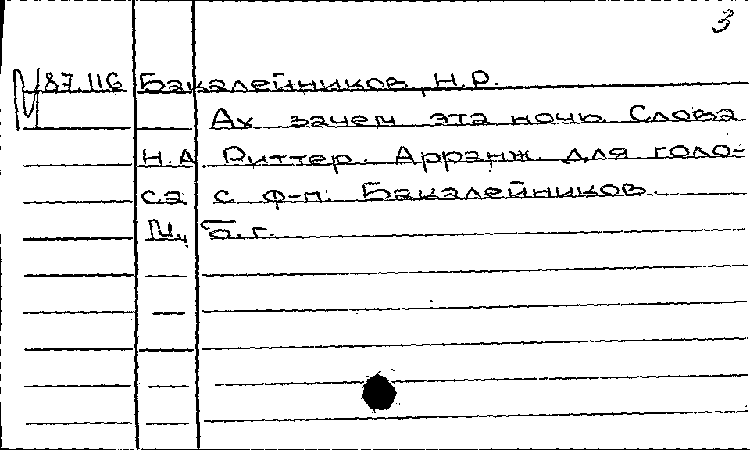 3
87.116 Бакалейников, Н.Р.
Ах зачем эта ночь. Слова
Н.А. Риттер. Арранж. для голо-
са с ф-п. Бакалейников.
М., б.г.